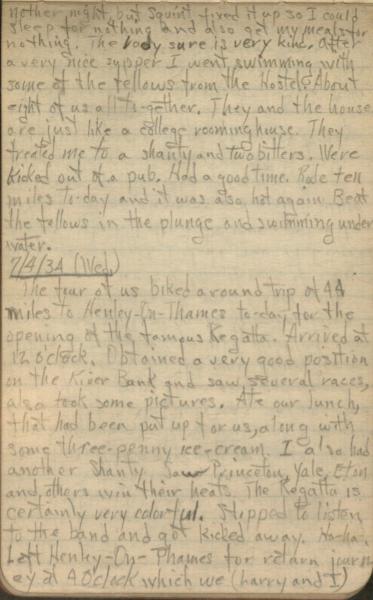 nother night, but Squint fixed it up so I could
sleep for nothing and also get my meals for
nothing. The lady sure is very kind. After
a very nice supper I went swimming with
some of the fellows from the Hostel. About
eight of us all to-gether. They and the house
are just like a college rooming house. They
treated me to a shanty and two bitters. Were
kicked out of a pub. Had a good time. Rode ten
miles to-day and it was also hot again. Beat
the fellows in the plunge and swimming under
water.
7/4/34 (Wed.)
The four of us biked a round trip of 44
miles to Henley-On-Thames to-day, for the
opening of the famous Regatta. Arrived at
12 o'clock. Obtained a very good position
on the River Bank and saw several races,
also took some pictures. Ate our lunch,
that had been put up for us, along with
some three-penny ice-cream. I also had
another shanty. Saw Princeton, Yale, Eton
and others win their heats. The Regatta is
certainly very colorful. Stopped to listen
to the band and got kicked away. Ha-ha.
Left Henley-On-Thames for return journ-
ey at 4 O'clock which we (Harry and I)